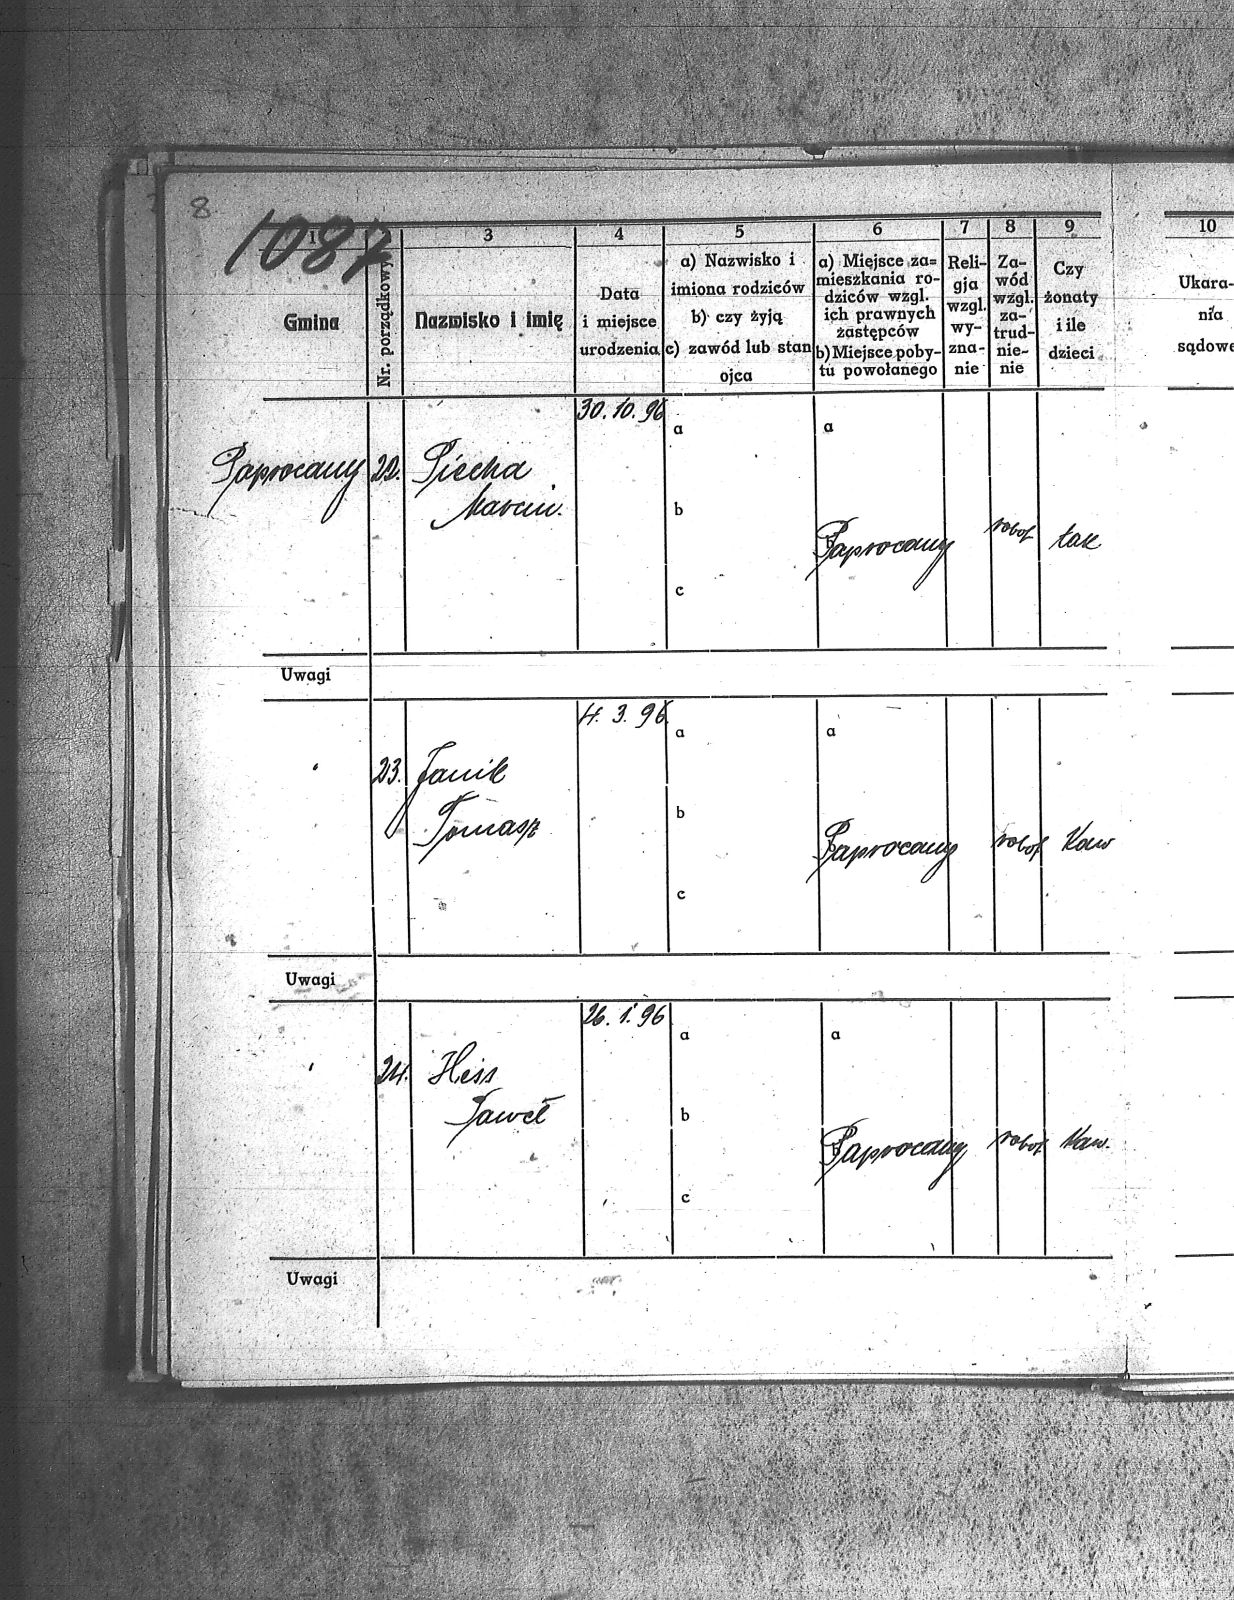 8
1087
1
3
4
5
6
7
8
9
10
Gmina
Nr. porządkowy
Nazwisko i imię
Data
i miejsce
urodzenia
a) Nazwisko i
imiona rodziców
b) czy żyją
c) zawód lub stan
ojca
a) Miejsce za=
mieszkania ro-
dziców wzgl.
ich prawnych
zastępców
b) Miejsce poby-
tu powołanego
Reli-
gja
wzgl.
wy-
zna-
nie
Za-
wód
wzgl.
za-
trud-
nie-
nie
Czy
żonaty
i ile
dzieci
Ukara-
nia
sądowe
30. 10. 96
a
a
Paprocany 22. Piecha
Marcin.
b
Paprocany robot tak
c
Uwagi
4. 3. 96
a
a
23. Janik
Tomasz
b
Paprocany robot Kaw
c
Uwagi
26. 1. 96
a
a
24. Hess
Paweł
b
Paprocany robot Kaw.
c
Uwagi